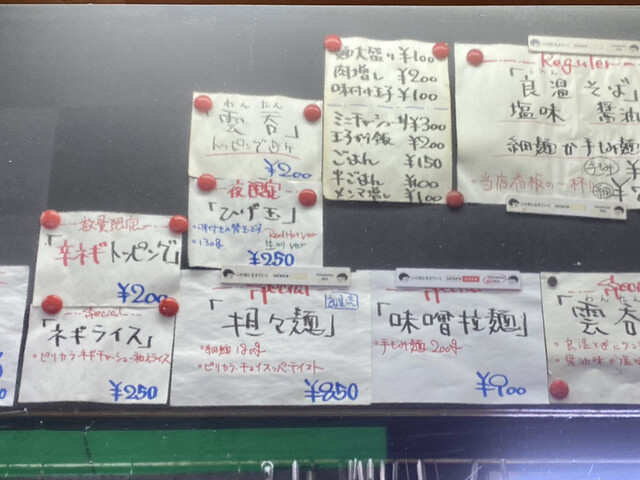 麺大盛り ¥100
肉増し ¥200
味付け玉子 ¥100
ミニチャーシュー丼 ¥300
玉子かけ飯 ¥200
ごはん ¥150
半ごはん ¥100
メンマ増し ¥100
Reguler
「良温そば」
塩味 醤油
細麺か手もみ麺
当店看板の一杯!
わんたん
「雲呑」
トッピング5ヶ
¥200
夜限定
「ひげ玉」
味付きの替玉です
130g
Red Hot ver
生卵 ver
¥250
数量限定
「辛ネギトッピング」
¥200
Special
「ネギライス」
ピリカラネギチャーシュー和えライス
¥250
Special
「担々麺」
細麺 130g
ピリカラ、チョイスッパテイスト
¥850
Special
「味噌拉麺」
手もみ麺 200g
¥900
Special
わんた
「雲呑